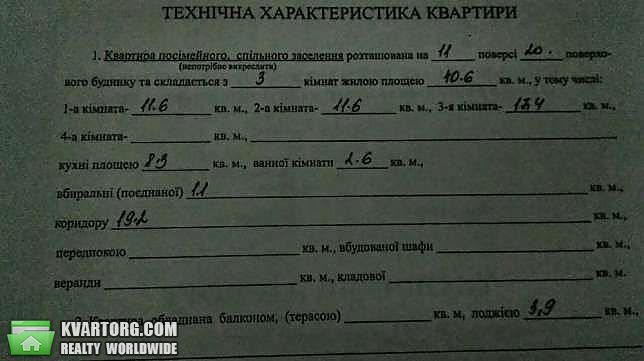 ТЕХНІЧНА ХАРАКТЕРИСТИКА КВАРТИРИ
1. Квартира посімейного, спільного заселення розташована на 11 поверсі 20. поверхо-
(непотрібне викреслити)
вого будинку та складається з 3 кімнат жилою площею 40.6 кв. м., у тому числі:
1-а кімната- 11.6 кв. м., 2-а кімната- 11.6 кв. м., 3-я кімната- 17.4 кв. м.,
4-а кімната- кв. м.,
кухні площею 8.3 кв. м., ванної кімнати 2.6 кв. м.,
вбиральні (поєднаної) 1.1 кв. м.,
коридору 19.2 кв. м.,
передпокою кв. м., вбудованої шафи кв. м.,
веранди кв. м., кладової кв. м.
2. Квартира обладнана балконом, (терасою) кв. м, лоджією 3,9 кв. м.,
KVARTORG.COM
REALTY WORLDWIDE